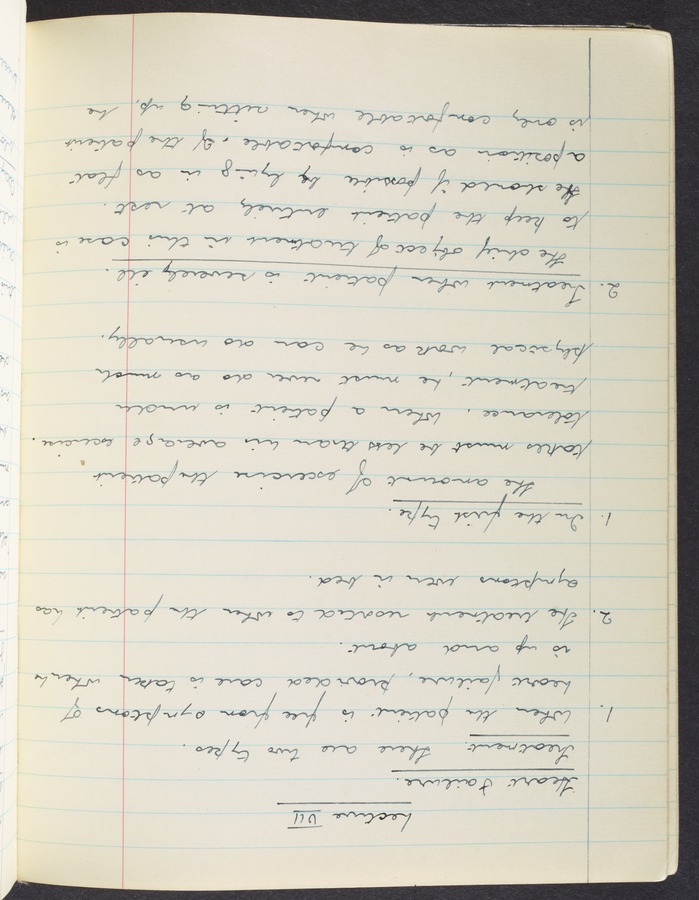 Lecture VII
Heart Failure.
Treatment. There are two types.
1. When the patient is free from symptoms of
heart failure, provided care is taken when he
is up and about.
2. The treatment needed to when the patient has
symptoms even in bed.
1. In the first type.
The amount of excercise the patient
takes must be less than his average excercise
tolerance. When a patient is under
treatment, he must never do as much
physical work as he can do usually.
2. Treatment when patient is severely ill.
The chief object of treatment in this case is
to keep the patient entirely at rest.
He should if possible be lying in as flat
a position as is comfortable. If the patient
is only comfortable when sitting up, he